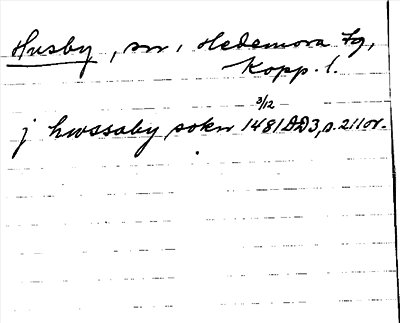 Husby, sn, Hedemora Fg,
Kopp. l.
3/12
j hwssaby sokn 1481 DD3, s. 211 or.